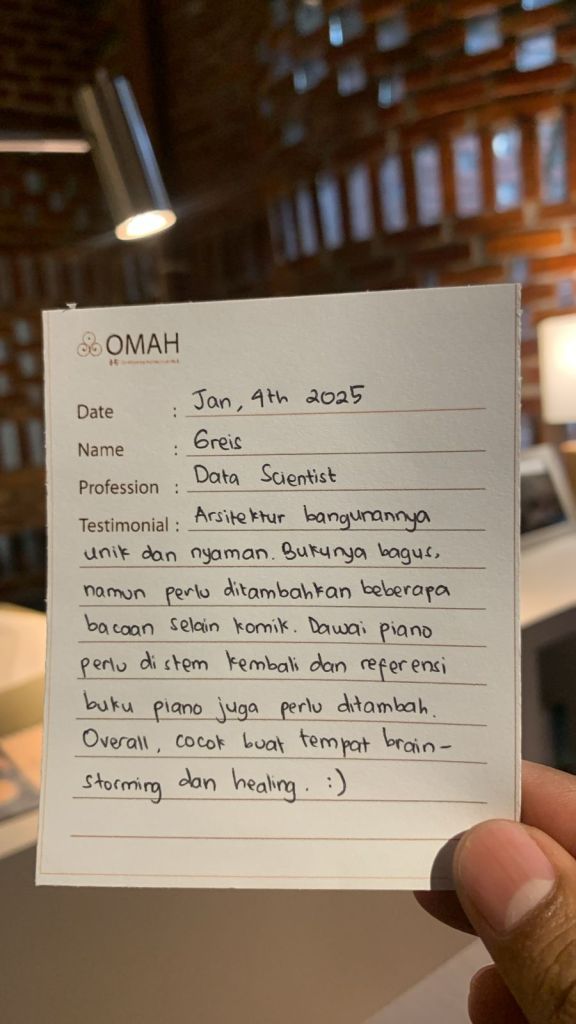 OMAH
Date : Jan, 4th 2025
Name : Greis
Profession : Data Scientist
Testimonial : Arsitektur bangunannya
unik dan nyaman. Bukunya bagus,
namun perlu ditambahkan beberapa
bacaan selain komik. Dawai piano
perlu di stem kembali dan referensi
buku piano juga perlu ditambah.
Overall, cocok buat tempat brain-
storming dan healing. :)